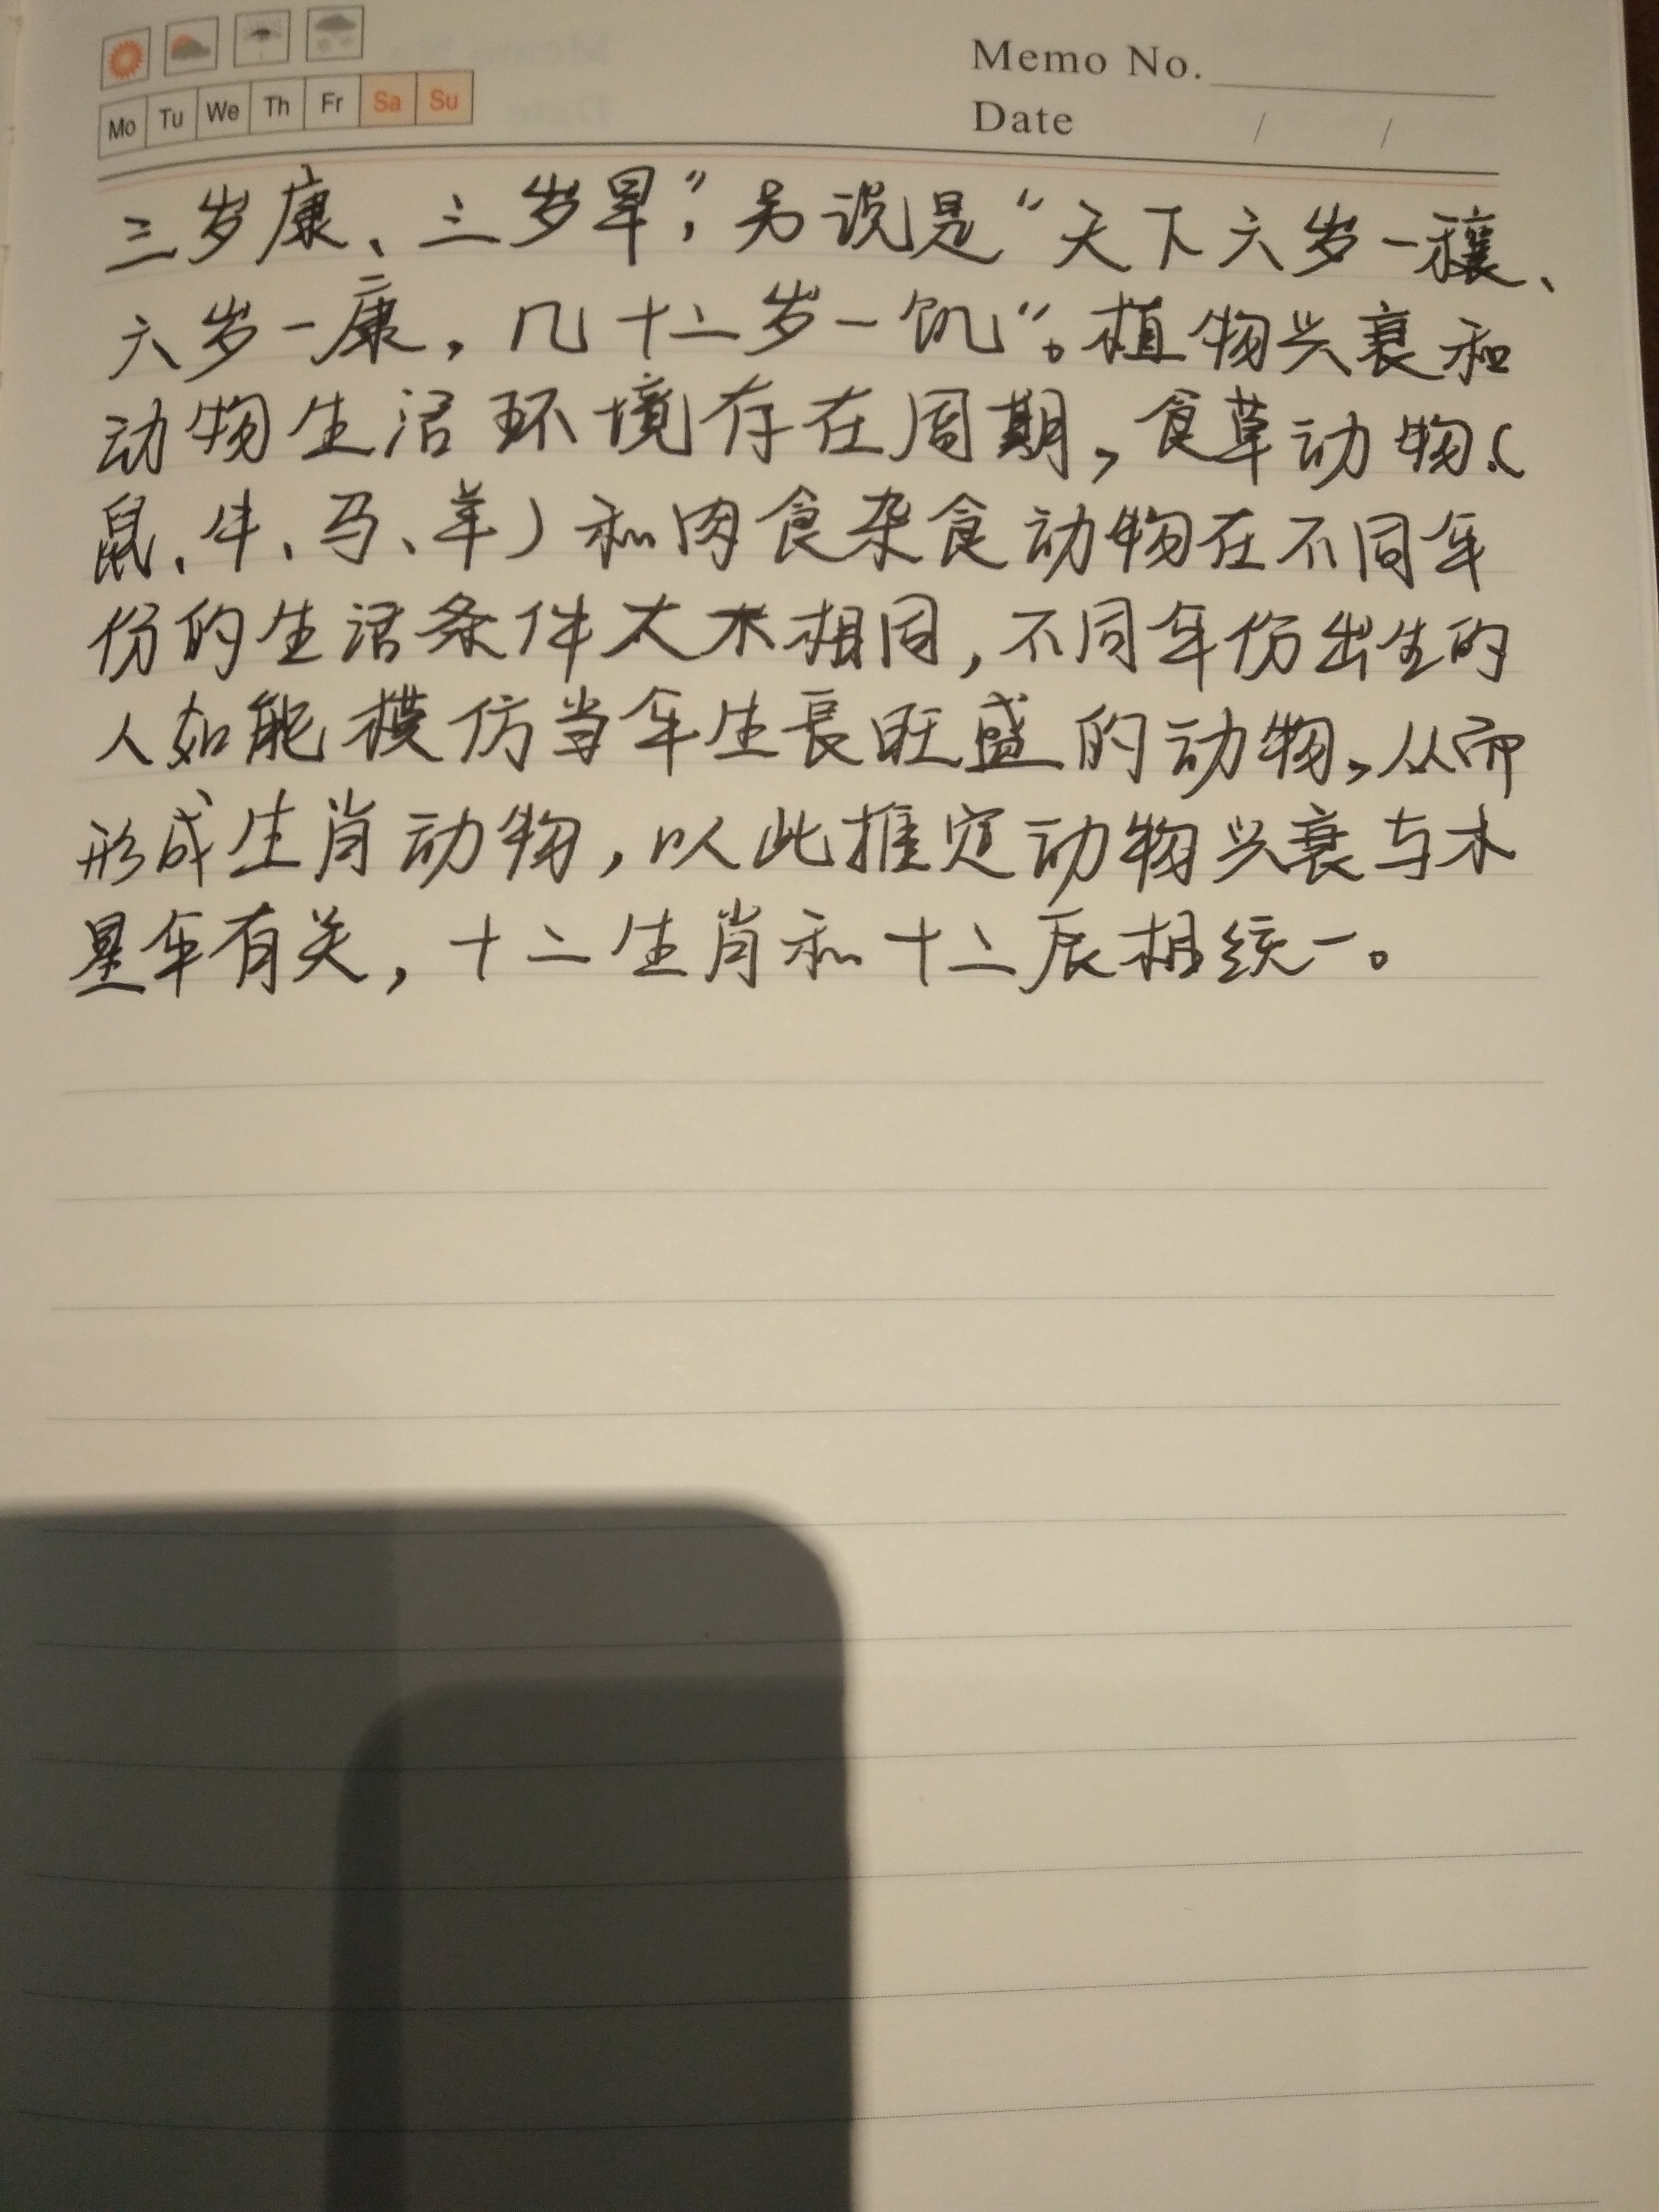 Memo No.
Mo Tu We Th Fr Sa Su
Date / /
三岁康、三岁旱"，另说是"天下六岁一穰、
六岁一康，几十二岁一饥"。植物兴衰和
动物生活环境存在周期，食草动物（
鼠、牛、马、羊）和肉食杂食动物在不同年
份的生活条件大不相同，不同年份出生的
人如能模仿当年生长旺盛的动物，从而
形成生肖动物，以此推定动物兴衰与木
星年有关，十二生肖和十二辰相统一。